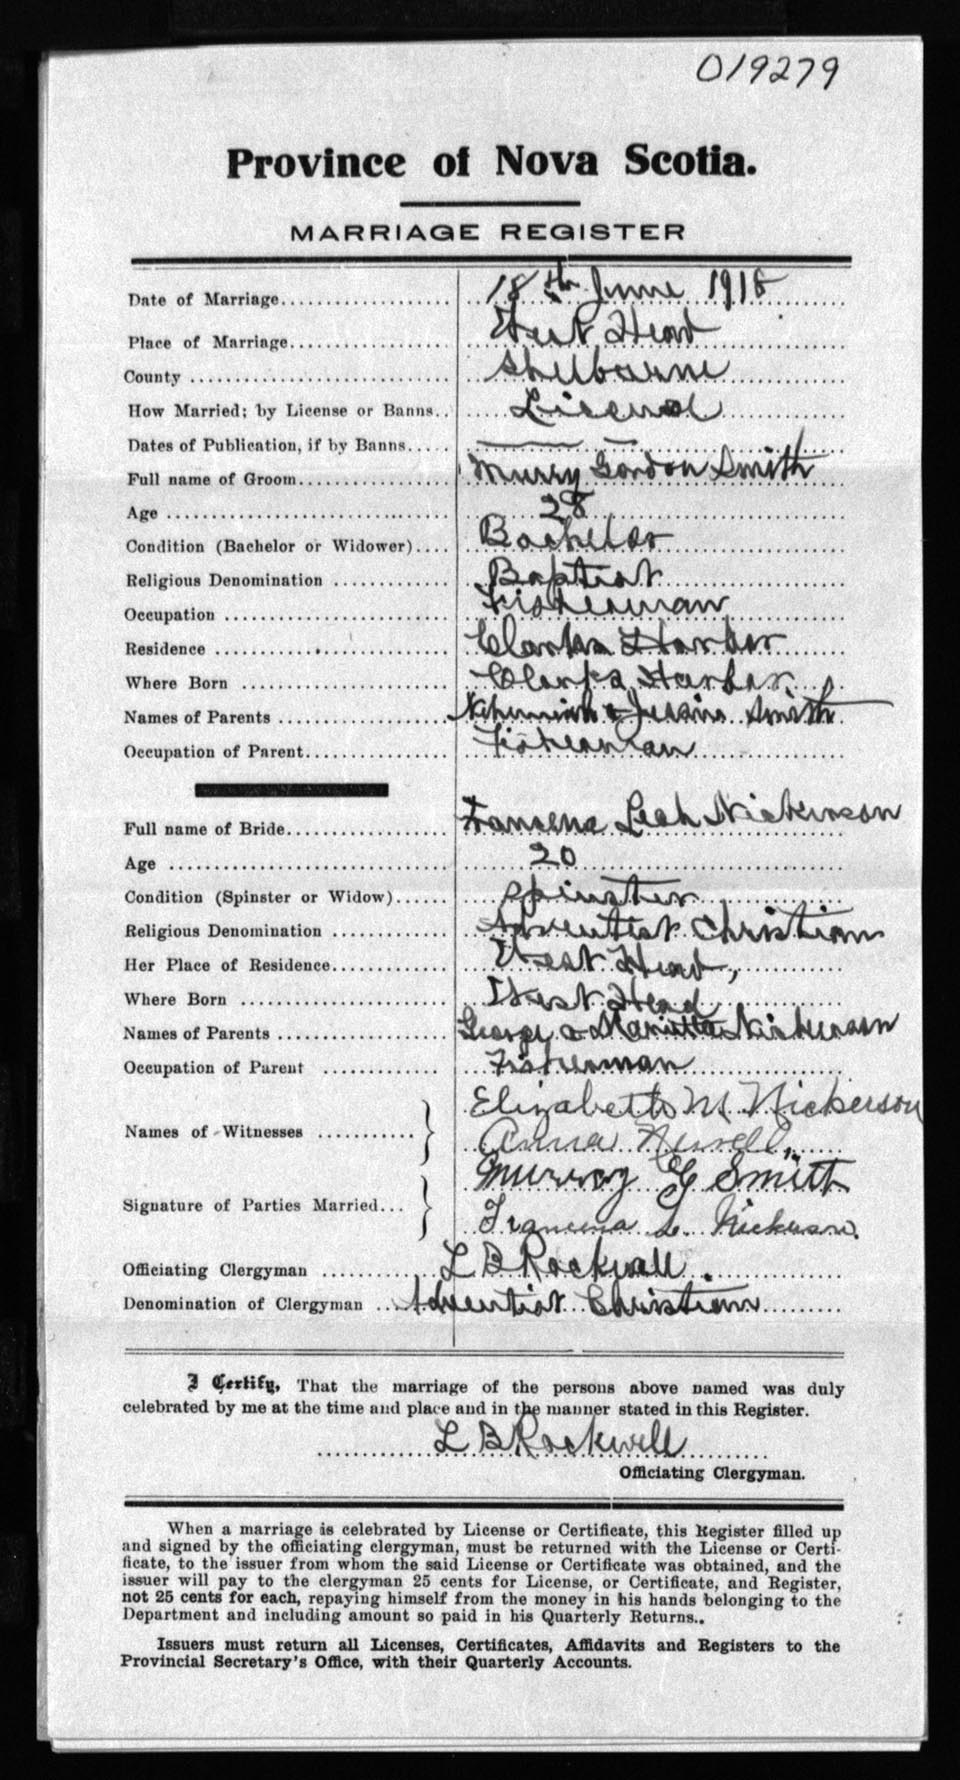 019279
Province of Nova Scotia.
MARRIAGE REGISTER
Date of Marriage 18th June 191
Place of Marriage West Head
County Shelbourne
How Married; by License or Banns Licensed
Dates of Publication, if by Banns
Full name of Groom Murry Gordon Smith
Age 28
Condition (Bachelor or Widower) Bachelor
Religious Denomination Baptist
Occupation Fisherman
Residence Clarks Harbor
Where Born Clarks Harbor
Names of Parents Nehemiah & Jessie Smith
Occupation of Parent Fisherman
Full name of Bride Francena Leah Nickerson
Age 20
Condition (Spinster or Widow) Spinster
Religious Denomination Adventist Christian
Her Place of Residence West Head,
Where Born West Head
Names of Parents George & Marietta Nickerson
Occupation of Parent Fisherman
Names of Witnesses Elizabeth M Nickerson
Anna Newell
Signature of Parties Married Murray G Smith
Francena L. Nickerson.
Officiating Clergyman L B Rockwell.
Denomination of Clergyman Adventist Christian
I Certify, That the marriage of the persons above named was duly
celebrated by me at the time and place and in the manner stated in this Register.
L B Rockwell
Officiating Clergyman.
When a marriage is celebrated by License or Certificate, this Register filled up
and signed by the officiating clergyman, must be returned with the License or Certi-
ficate, to the issuer from whom the said License or Certificate was obtained, and the
issuer will pay to the clergyman 25 cents for License, or Certificate, and Register,
not 25 cents for each, repaying himself from the money in his hands belonging to the
Department and including amount so paid in his Quarterly Returns..
Issuers must return all Licenses, Certificates, Affidavits and Registers to the
Provincial Secretary's Office, with their Quarterly Accounts.